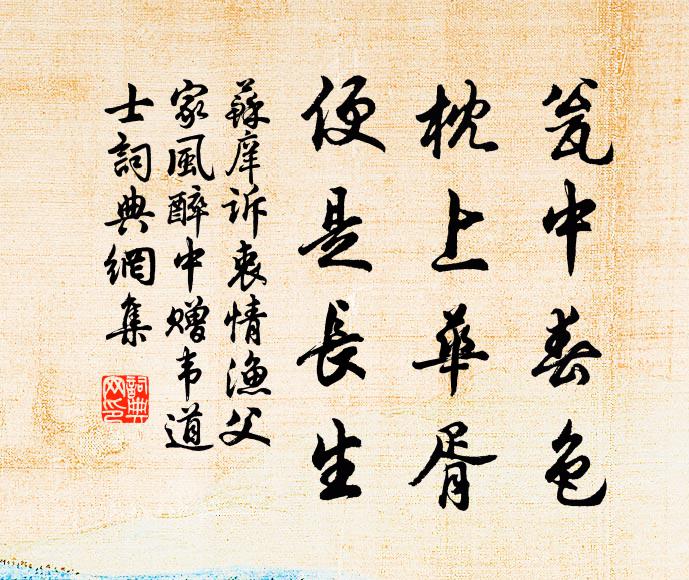 瓮中春色
枕上華胥
便是長生
蘇庠訴衷情漁父
家風醉中赠韦道
士詞典網集
詞典网印